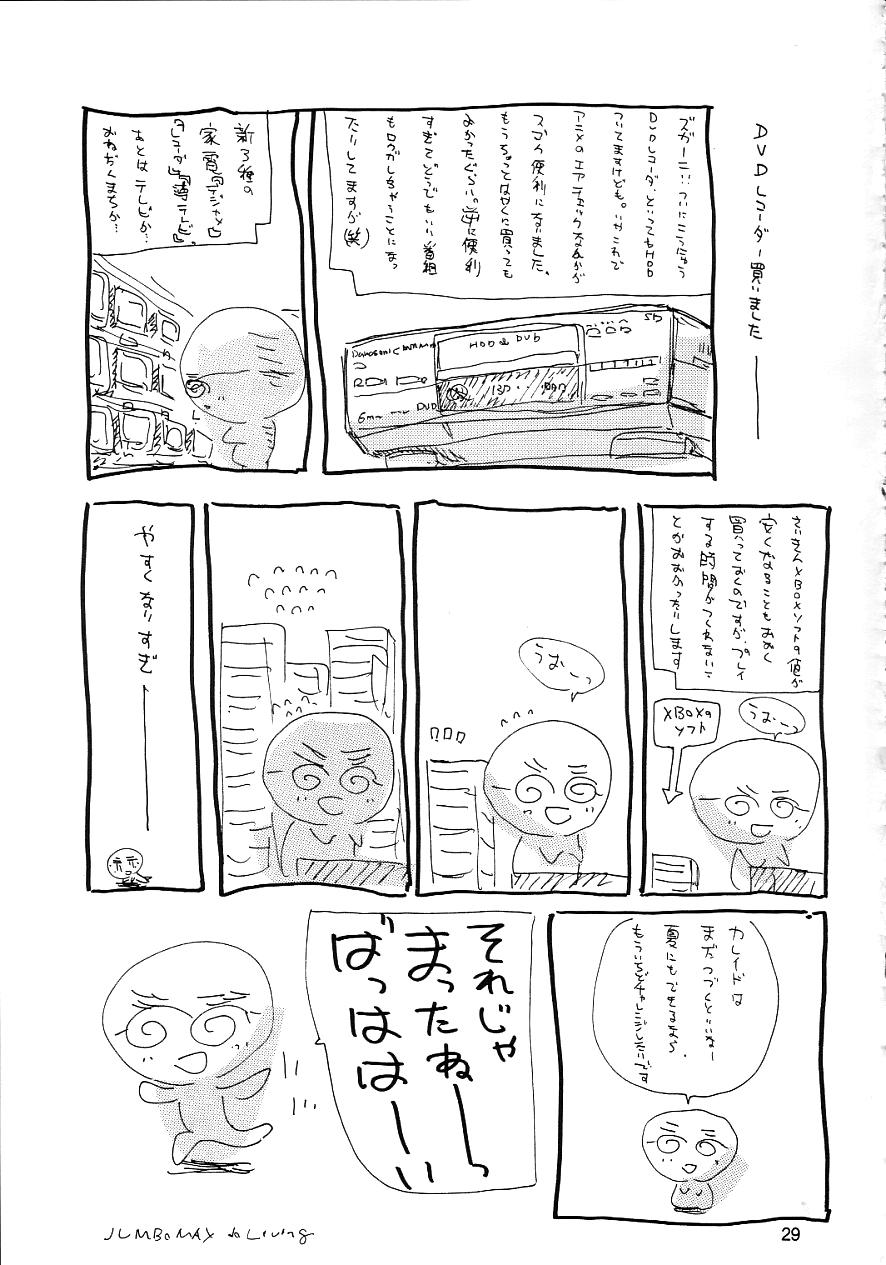 DVDレコーダー買いました——
ズガーン…ついにこうにゅう
DVDレコーダ、といってもHDD
ついてますけども。いやこれで
アニメのエアチェックなんかが
スゴク便利になりました。
もうちょっとはやくに買っても
よかったぐらい。逆に便利
すぎてどうでもいい番組
もロクガしちゃうことになっ
たりしてますが(笑)
HDD & DVD
SD
DVD
新3種の
家電『デジカメ』
『レコーダ』『薄テレビ』、
あとはテレビか…
おねだんまちか…
さいきんXBOXソフトの値が
安くなることもおおく
買っておくのですが、プレイ
する時間がつくれないこ
とがおおかったりします
XBOXの
ソフト
うおーっ
うおーっ
やすくなりすぎ——
カレイドは
まだつづくといいなー
夏にもできるなら、
もういちどチャレンジしたいです
それじゃ
まったね——っ
ばっはは——い
JUMBOMAX do Living
29